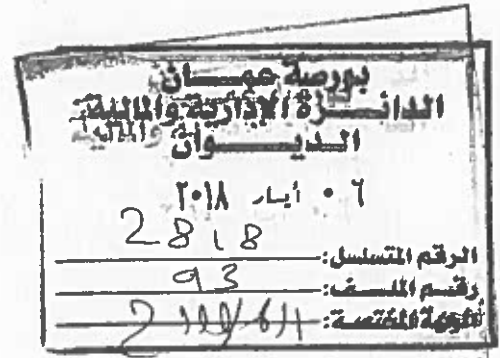 بورصة عمان
الدائرة الإدارية والمالية
الديوان
٠٦ أيار ٢٠١٨
الرقم المتسلسل: 2818
رقم الملف: 93
الجهة المختصة: